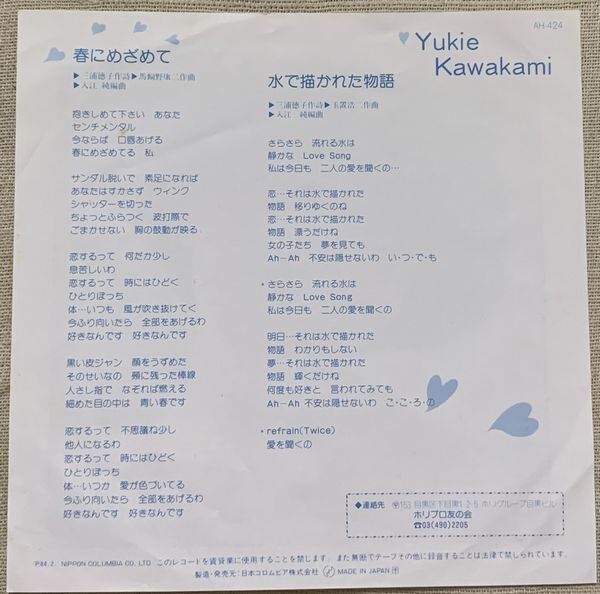 AH-424
Yukie
Kawakami
春にめざめて
▶三浦徳子作詩▶馬飼野康二作曲
▶入江 純編曲
抱きしめて下さい あなた
センチメンタル
今ならば 口唇あげる
春にめざめてる 私
サンダル脱いで 素足になれば
あなたはすかさず ウィンク
シャッターを切った
ちょっとふらつく 波打際で
ごまかせない 胸の鼓動が映る
恋するって 何だか少し
息苦しいわ
恋するって 時にはひどく
ひとりぼっち
体…いつも 風が吹き抜けてく
今ふり向いたら 全部をあげるわ
好きなんです 好きなんです
黒い皮ジャン 顔をうずめた
そのせいなの 頬に残った棒線
人さし指で なぞれば燃える
細めた目の中は 青い春です
恋するって 不思議ね少し
他人になるわ
恋するって 時にはひどく
ひとりぼっち
体…いつか 愛が色づいてる
今ふり向いたら 全部をあげるわ
好きなんです 好きなんです
水で描かれた物語
▶三浦徳子作詩▶玉置浩二作曲
▶入江 純編曲
さらさら 流れる水は
静かな Love Song
私は今日も 二人の愛を聞くの…
恋…それは水で描かれた
物語 移りゆくのね
恋…それは水で描かれた
物語 漂うだけね
女の子たち 夢を見ても
Ah-Ah 不安は隠せないわ い・つ・で・も
*さらさら 流れる水は
静かな Love Song
私は今日も 二人の愛を聞くの
明日…それは水で描かれた
物語 わかりもしない
夢…それは水で描かれた
物語 輝くだけね
何度も好きと 言われてみても
Ah-Ah 不安は隠せないわ こ・こ・ろ・の
*refrain(Twice)
愛を聞くの
◆連絡先 〒153 目黒区下目黒1-2-5 ホリグループ目黒ビル
ホリプロ友の会
☎03(490)2205
P.84.2. NIPPON COLUMBIA CO., LTD. このレコードを賃貸業に使用することを禁じます。また無断でテープその他に録音することは法律で禁じられています。
製造・発売元:日本コロムビア株式会社 MADE IN JAPAN